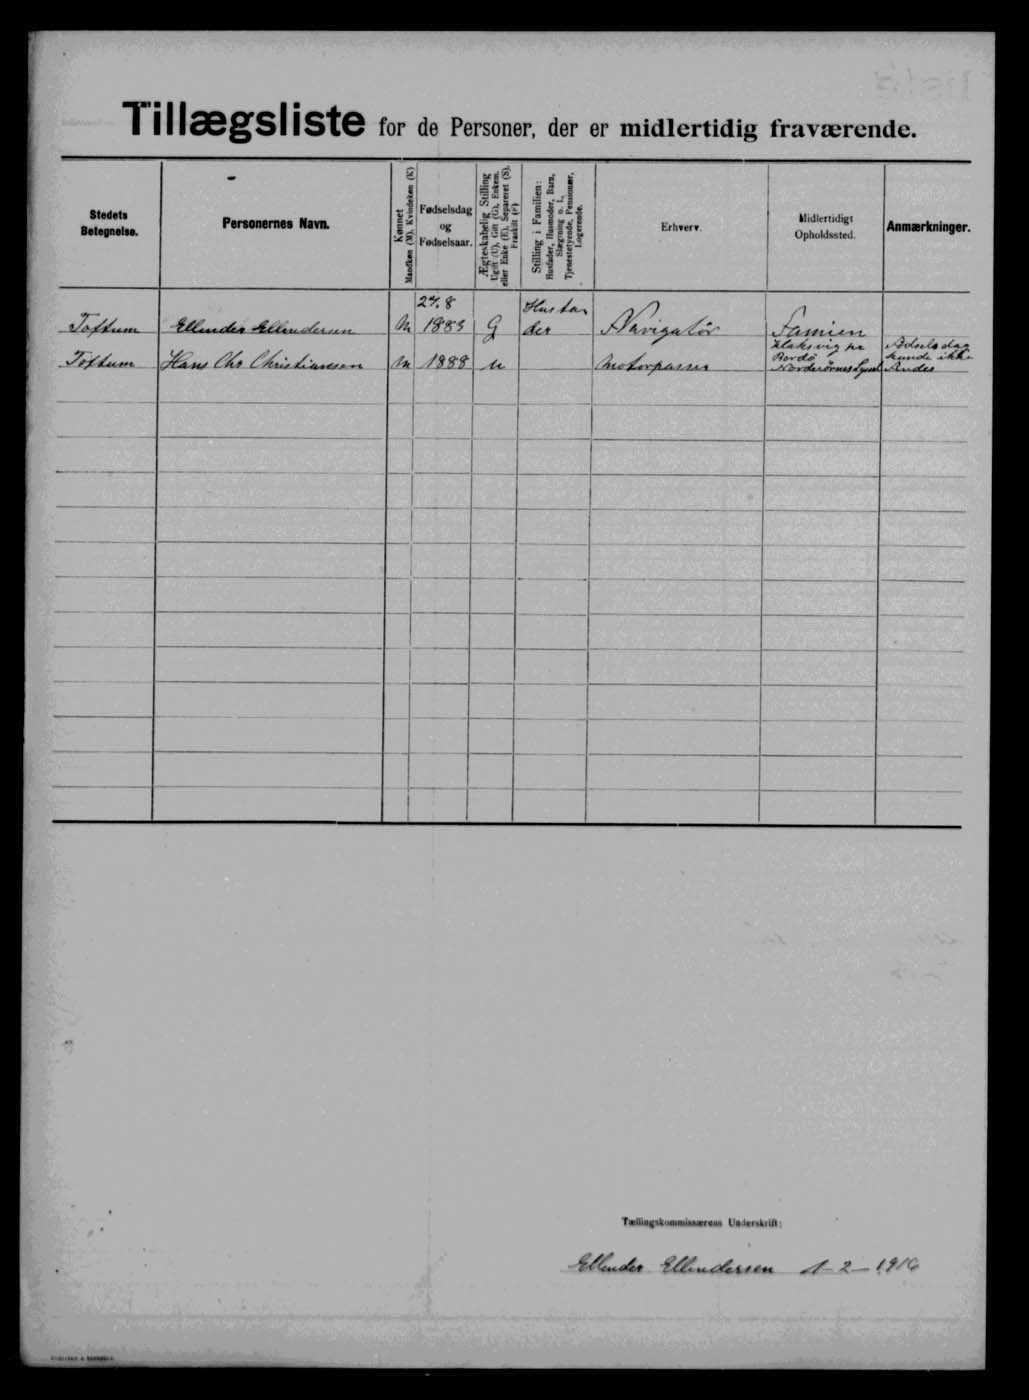 Tillægsliste for de Personer, der er midlertidig fraværende.
Stedets Betegnelse.
Personernes Navn.
Kønnet
Mandkøn (M), Kvindekøn (K)
Fødselsdag
og
Fødselsaar.
Ægteskabelig Stilling
Ugift (U), Gift (G), Enkem.
eller Enke (E), Separeret (S),
Fraskilt (F)
Stilling i Familien:
Husfader, Husmoder, Barn,
Slægtning o. l.,
Tjenestetyende, Pensionær,
Logerende.
Erhverv.
Midlertidigt
Opholdssted.
Anmærkninger.
Toftum Ellender Ellendersen M 1883 G Husfa der Navigatör
Toftum Hans Chr Christiansen M 1888 U Motorpasser Klaksvig paa Bordö kunde ikke
Tællingskommissærens Underskrift:
Ellender Ellendersen 1-2-1916